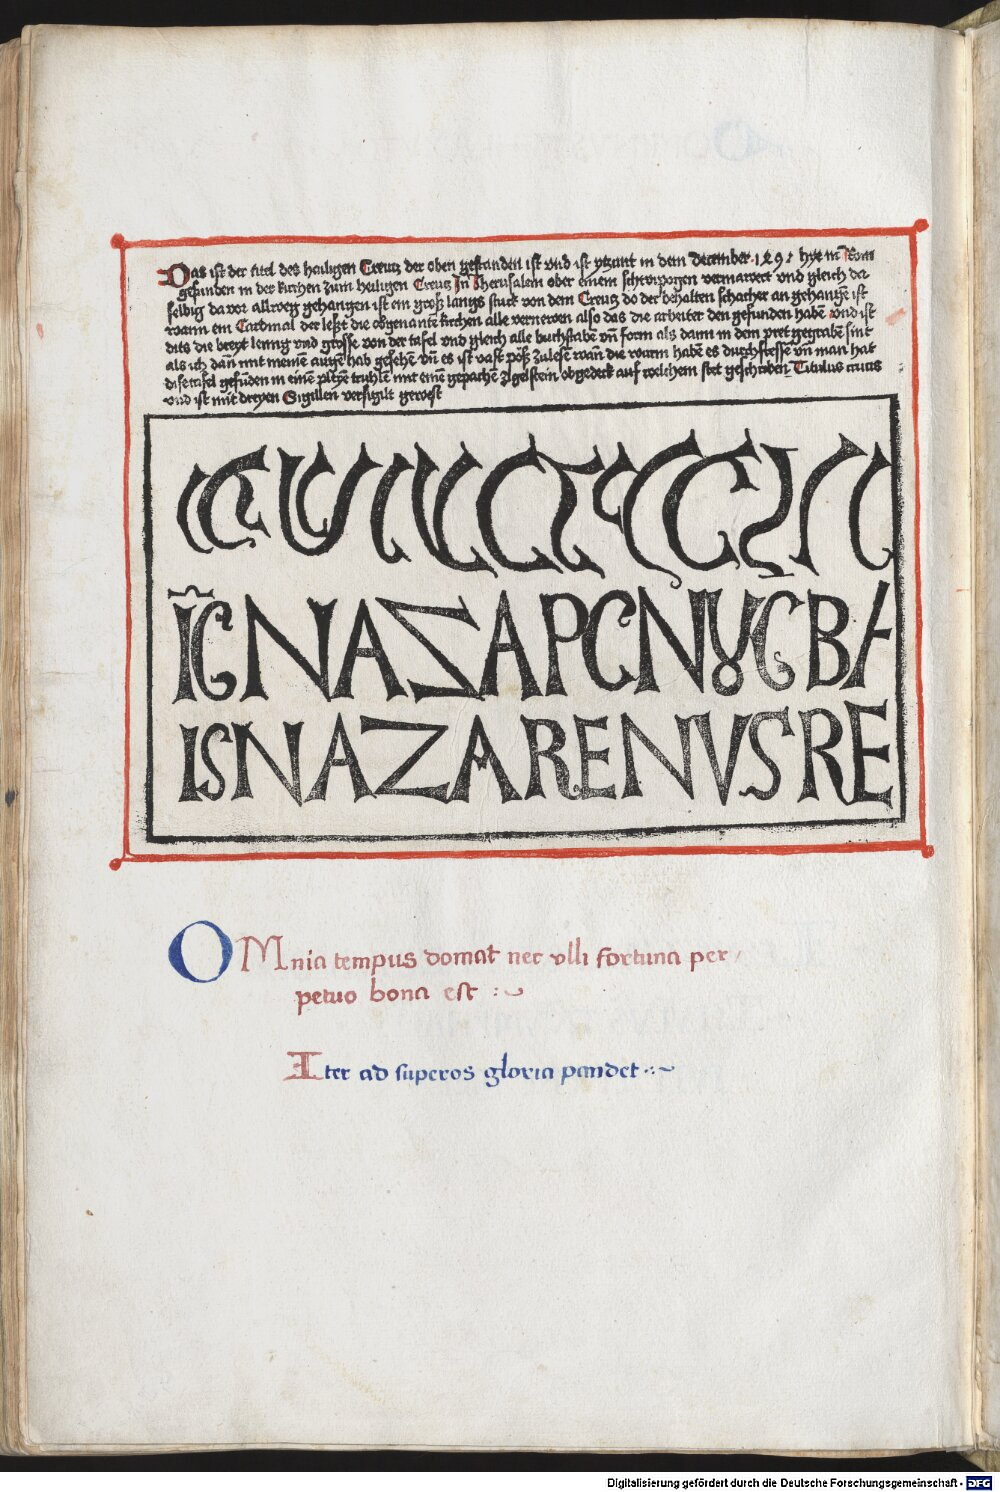 Das ist der titel des hailigen Creutz der oben gestanden ist vnd ist ytzunt in dem December 1492 hye in Rom
gefunden in der kirchen zum heiligen Creutz In Jherusalem ober einem schwipogen vermawert vnd gleich da
selbig da vor allweg gehangen ist ein groß langs stuck von dem Creutz do der behalten schacher an gehangē ist
wann ein Cardinal der leßt die obgenante kirchen alle vernewen also das die arbeiter den gefunden habē vnd ist
dits die breyt lenng vnd grosse von der tafel vnd gleich alle buchstabē vn̄ form als dann in dem pret gegrabē sint
als ich dan̄ mit meinē augē hab gesehē vn̄ es ist vast pöß zulesē wan̄ die wurm habē es durchfressē vn̄ man hat
dise tafel gefūden in einē pleyē truhlē mit einē gepachē zigelstein obgedeckt auf welchem stet geschriben Titulus crucis
vnd ist mit dreyen Sigillen versigilt gewest
IS NAZAPENVS B
IS NAZARENVS RE
OMnia tempus domat nec vlli fortuna per
petuo bona est
Iter ad superos gloria pandet
Digitalisierung gefördert durch die Deutsche Forschungsgemeinschaft - DFG